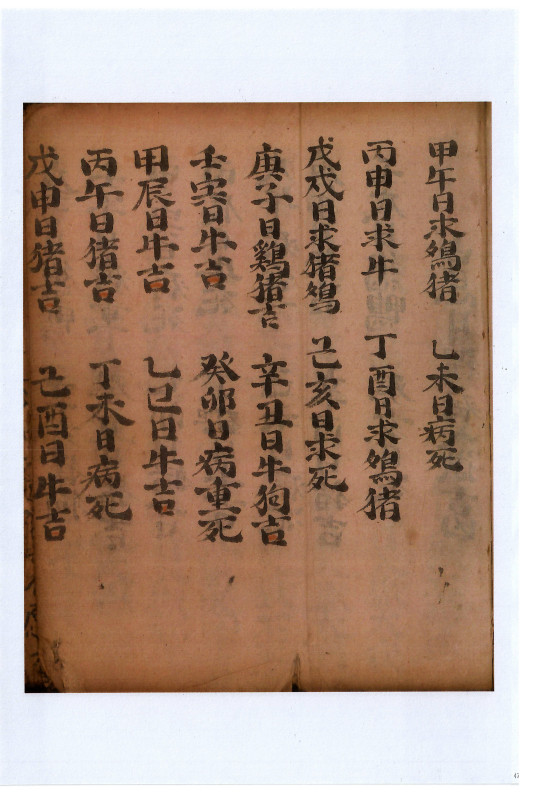 甲午日求鴆猪 乙未日病死
丙申日求牛 丁酉日求鴆猪
戊戍日求猪鴆 己亥日求死
庚子日鷄猪吉 辛丑日牛狗吉
壬寅日牛吉 癸卯日病重死
甲辰日牛吉 乙巳日牛吉
丙午日猪吉 丁未日病死
戊申日猪吉 己酉日牛吉